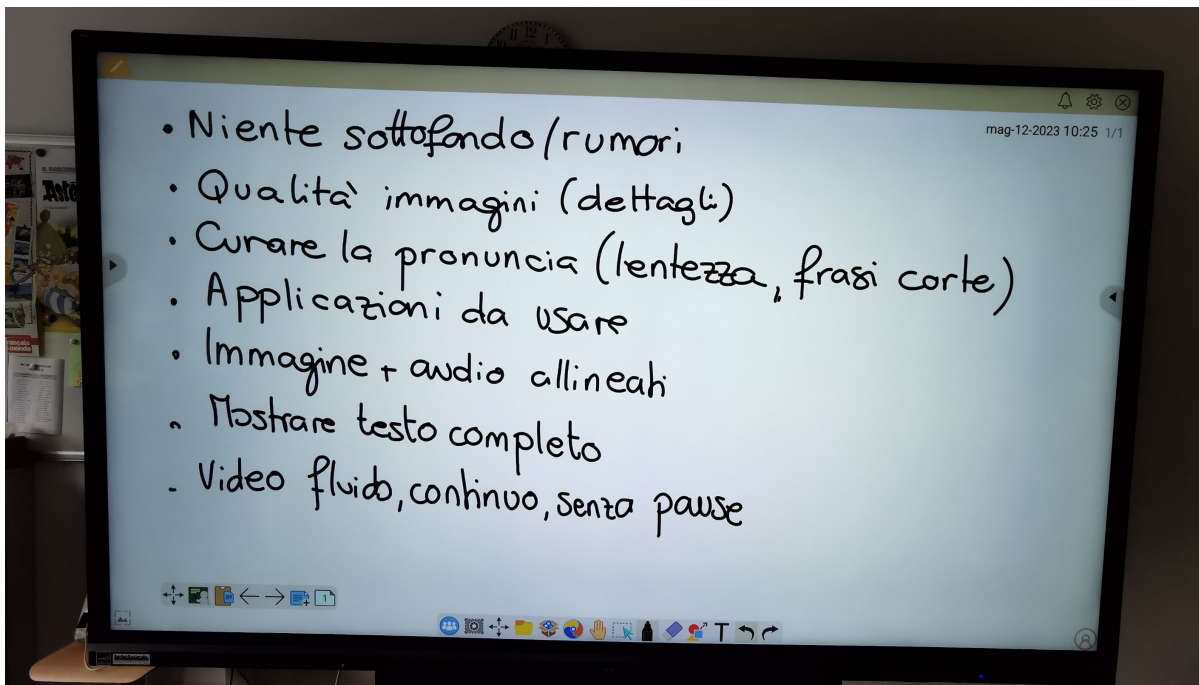 mag-12-2023 10:25 1/1
• Niente sottofondo/rumori
• Qualità immagini (dettagli)
• Curare la pronuncia (lentezza, frasi corte)
• Applicazioni da usare
• Immagine + audio allineati
• Mostrare testo completo
- Video fluido, continuo, senza pause
1
T